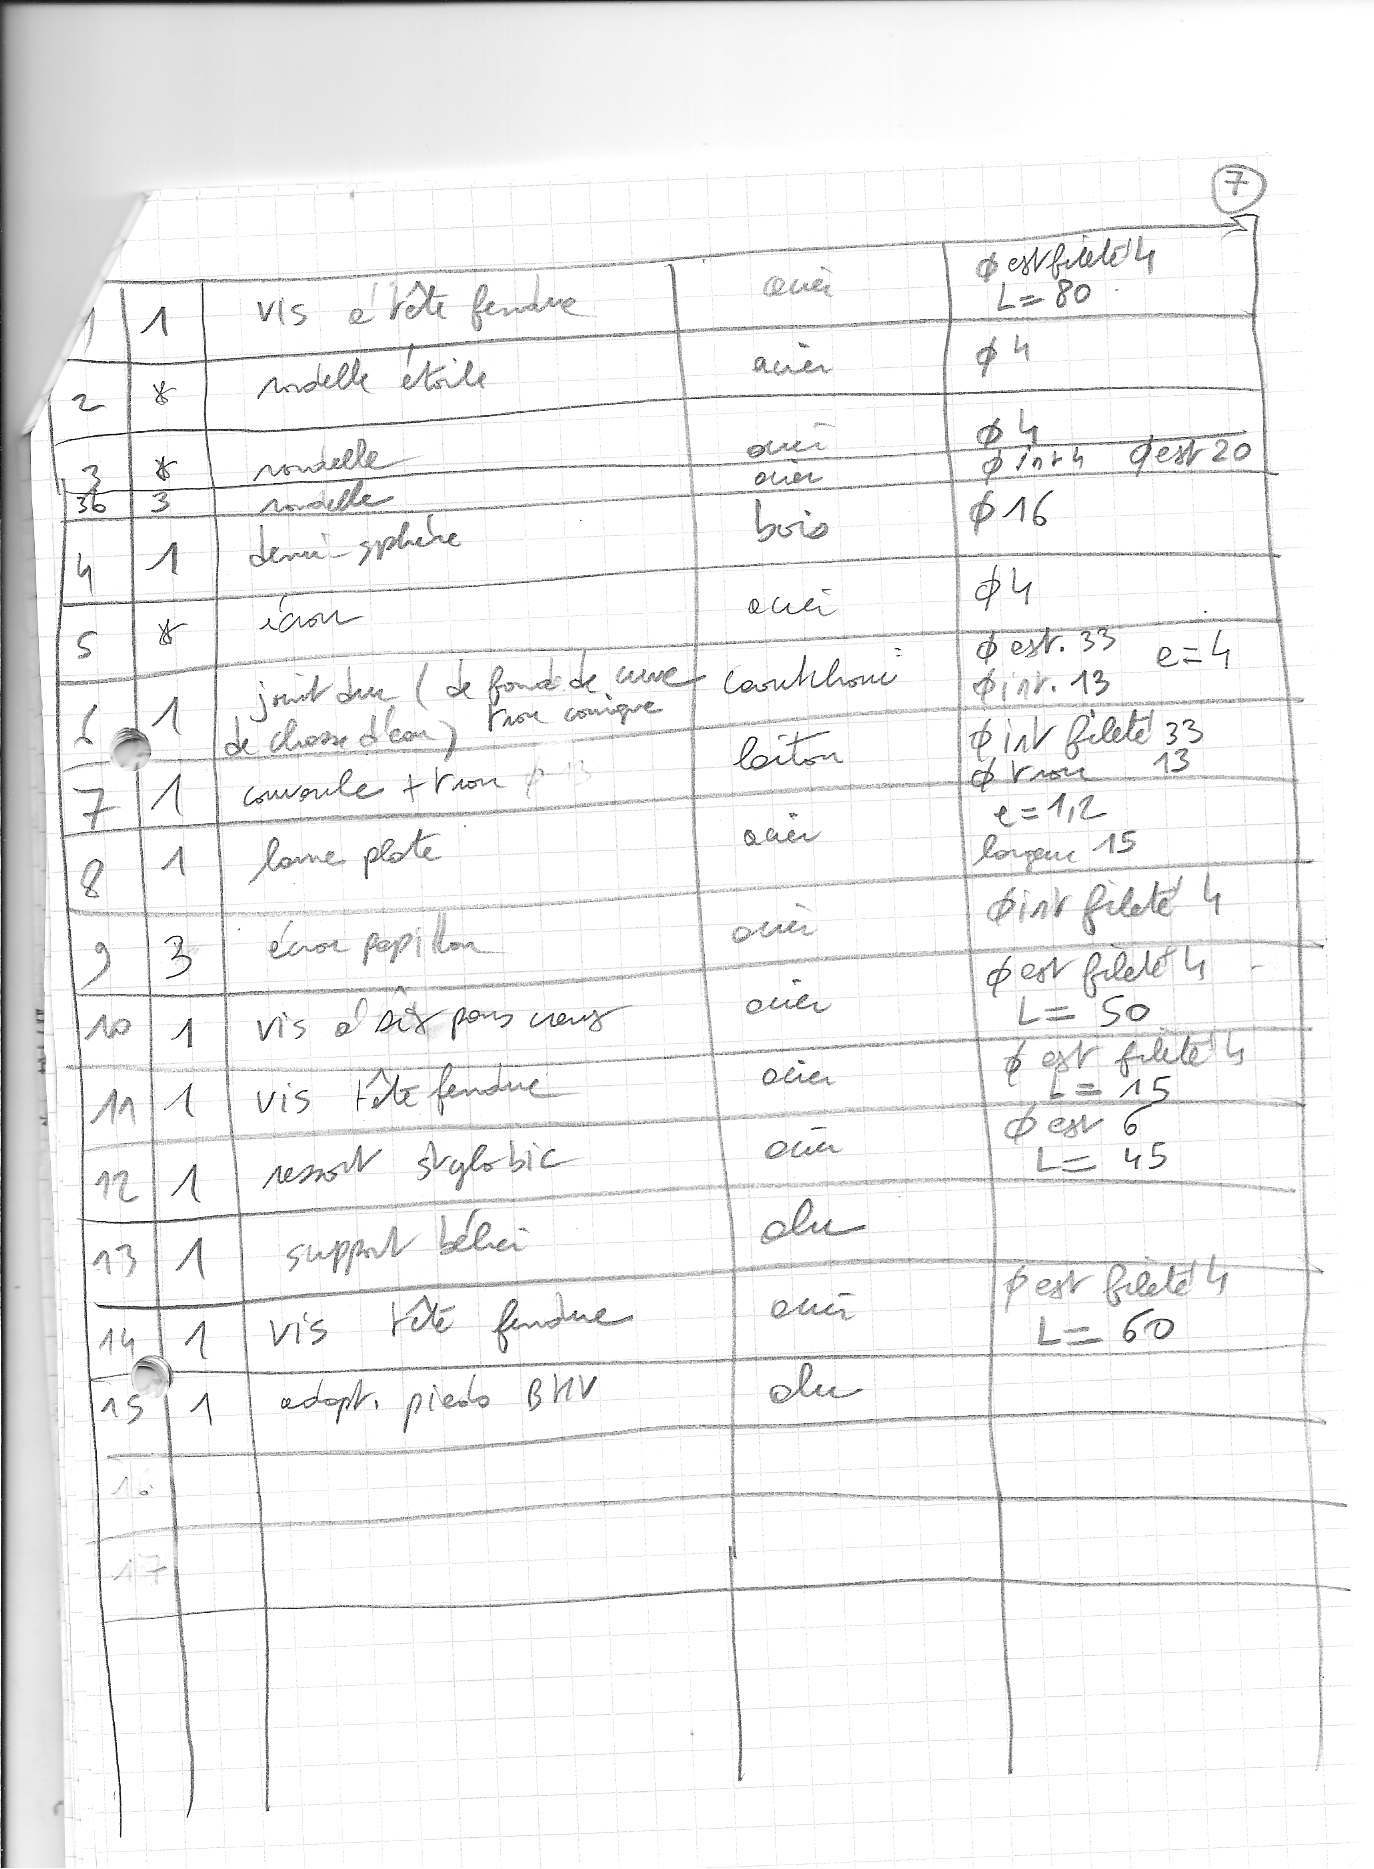 7
1 1 vis à tête fendue acier ϕ ext fileté 4
L = 80
2 * rondelle étoile acier ϕ 4
3 * rondelle acier ϕ 4
3b 3 rondelle acier ϕ int 4 ϕ ext 20
4 1 demi-sphère bois ϕ 16
5 * écrou acier ϕ 4
6 1 joint dur (de fond de cuve caoutchouc ϕ ext. 33 e = 4
de chasse d'eau) trou conique ϕ int. 13
7 1 couvercle + trou ϕ 13 laiton ϕ int fileté 33
ϕ trou 13
8 1 lame plate acier e = 1,2
largeur 15
9 3 écrou papillon acier ϕ int fileté 4
10 1 vis à six pans creux acier ϕ ext fileté 4
L = 50
11 1 vis tête fendue acier ϕ ext fileté 4
L = 15
12 1 ressort stylobic acier ϕ ext 6
L = 45
13 1 support bélier alu
14 1 vis tête fendue acier ϕ ext fileté 4
L = 60
15 1 adapt. pieds BHV alu
16
17